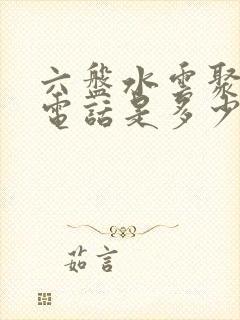 六盤水電聚
電話是多少
茹言